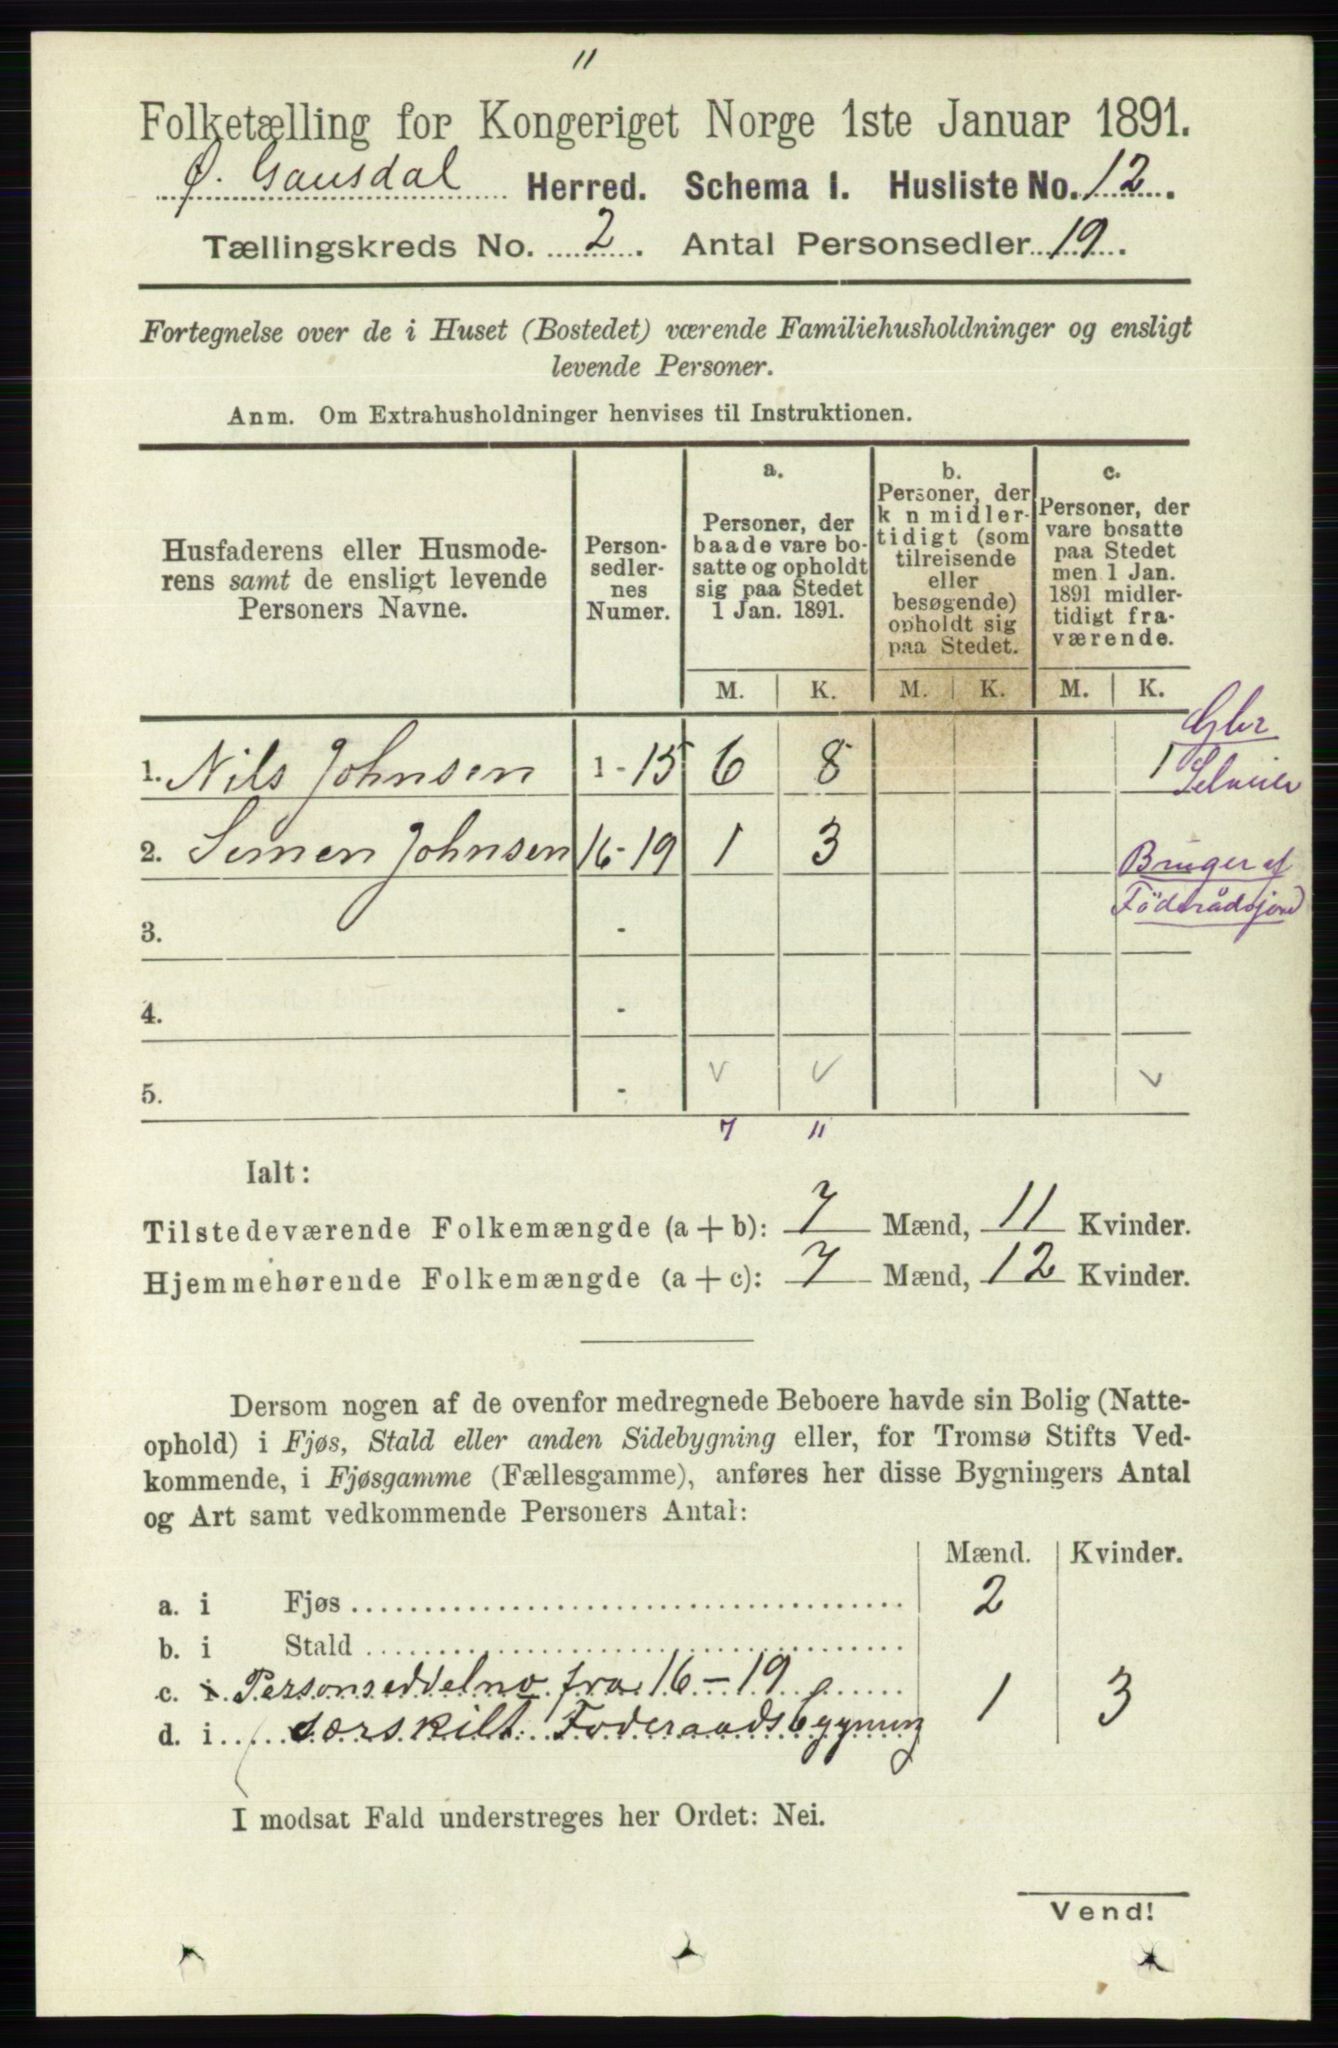 11
Folketælling for Kongeriget Norge 1ste Januar 1891.
Ø. Gausdal Herred. Schema I. Husliste No. 12.
Tællingskreds No. 2. Antal Personsedler 19.
Fortegnelse over de i Huset (Bostedet) værende Familiehusholdninger og ensligt
levende Personer.
Anm. Om Extrahusholdninger henvises til Instruktionen.
Husfaderens eller Husmode-
rens samt de ensligt levende
Personers Navne.
Person-
sedler-
nes
Numer.
a.
Personer, der
baade vare bo-
satte og opholdt
sig paa Stedet
1 Jan. 1891.
b.
Personer, der
k n midler-
tidigt (som
tilreisende
eller
besøgende)
opholdt sig
paa Stedet.
c.
Personer, der
vare bosatte
paa Stedet
men 1 Jan.
1891 midler-
tidigt fra-
værende.
M. K. M. K. M. K.
Gbr
1. Nils Johnsen 1 - 15 6 8 1 Selveier
2. Simen Johnsen 16 - 19 1 3 Bruger af
Föderådsjord
3. -
4. -
5. - v v v
7 11
Ialt:
Tilstedeværende Folkemængde (a + b): 7 Mænd, 11 Kvinder.
Hjemmehørende Folkemængde (a + c): 7 Mænd, 12 Kvinder.
Dersom nogen af de ovenfor medregnede Beboere havde sin Bolig (Natte-
ophold) i Fjøs, Stald eller anden Sidebygning eller, for Tromsø Stifts Ved-
kommende, i Fjøsgamme (Fællesgamme), anføres her disse Bygningers Antal
og Art samt vedkommende Personers Antal:
Mænd. Kvinder.
a. i Fjøs 2
b. i Stald
c. i Personseddelno fra 16 - 19
d. i særskilt Foderaadsbygning 1 3
I modsat Fald understreges her Ordet: Nei.
Vend!